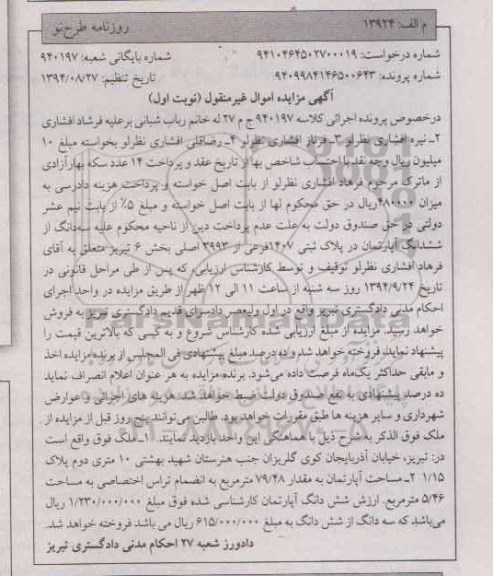 م الف: ۱۳۹۲۴
روزنامه طرح نو
شماره درخواست: ۹۴۱۰۴۶۴۵۰۲۷۰۰۰۱۹
شماره بایگانی شعبه: ۹۴۰۱۹۷
شماره پرونده: ۹۴۰۹۹۸۴۱۴۶۵۰۰۶۴۳
تاریخ تنظیم: ۱۳۹۴/۰۸/۲۷
آگهی مزایده اموال غیرمنقول (نوبت اول)
درخصوص پرونده اجرائی کلاسه ۹۴۰۱۹۷ ج م ۲۷ له خانم رباب شبانی برعلیه فرشاد افشاری
۲ـ نیره افشاری نظرلو ۳ـ فرناز افشاری نظرلو ۴ـ رضاقلی افشاری نظرلو بخواسته مبلغ ۱۰
میلیون ریال وجه نقد با احتساب شاخص بها از تاریخ عقد و پرداخت ۱۴ عدد سکه بهار آزادی
از ماترک مرحوم فرهاد افشاری نظرلو از بابت اصل خواسته و پرداخت هزینه دادرسی به
میزان ۴۸۰۰۰۰ریال در حق محکوم لها از بابت اصل خواسته و مبلغ ۵٪ از بابت نیم عشر
دولتی در حق صندوق دولت به علت عدم پرداخت دین از ناحیه محکوم علیه سه‌دانگ از
ششدانگ آپارتمان در پلاک ثبتی ۱۴۰۷فرعی از ۳۹۹۳ اصلی بخش ۶ تبریز متعلق به آقای
فرهاد افشاری نظرلو توقیف و توسط کارشناس ارزیابی، که پس از طی مراحل قانونی در
تاریخ ۱۳۹۴/۹/۲۴ روز سه شنبه از ساعت ۱۱ الی ۱۲ ظهر از طریق مزایده در واحد اجرای
احکام مدنی دادگستری تبریز واقع در اول ولیعصر دادسرای قدیم دادگستری تبریز به فروش
خواهد رسید. مزایده از مبلغ ارزیابی شده کارشناس شروع و به کسی که بالاترین قیمت را
پیشنهاد نماید، فروخته خواهد شد و ده درصد مبلغ پیشنهادی فی المجلس از برنده مزایده اخذ
و مابقی حداکثر یک‌ماه فرصت داده می‌شود. برنده مزایده به هر عنوان اعلام انصراف نماید
ده درصد پیشنهادی به نفع صندوق دولت ضبط خواهد شد. هزینه های اجرائی و عوارض
شهرداری و سایر هزینه ها طبق مقررات خواهد بود. طالبین می‌توانند پنج روز قبل از مزایده از
ملک فوق الذکر به شرح ذیل با هماهنگی این واحد بازدید نمایند. ۱ـ ملک فوق واقع است
در: تبریز، خیابان آذربایجان کوی گلریزان جنب هنرستان شهید بهشتی ۱۰ متری دوم پلاک
۱/۱۵ ۲ـ مساحت آپارتمان به مقدار ۷۹/۴۸ مترمربع به انضمام تراس اختصاصی به مساحت
۵/۴۶ مترمربع. ارزش شش دانگ آپارتمان کارشناسی شده فوق مبلغ ۱/۲۳۰/۰۰۰/۰۰۰ ریال
می‌باشد که سه دانگ از شش دانگ به مبلغ ۶۱۵/۰۰۰/۰۰۰ ریال می باشد فروخته خواهد شد.
دادورز شعبه ۲۷ احکام مدنی دادگستری تبریز